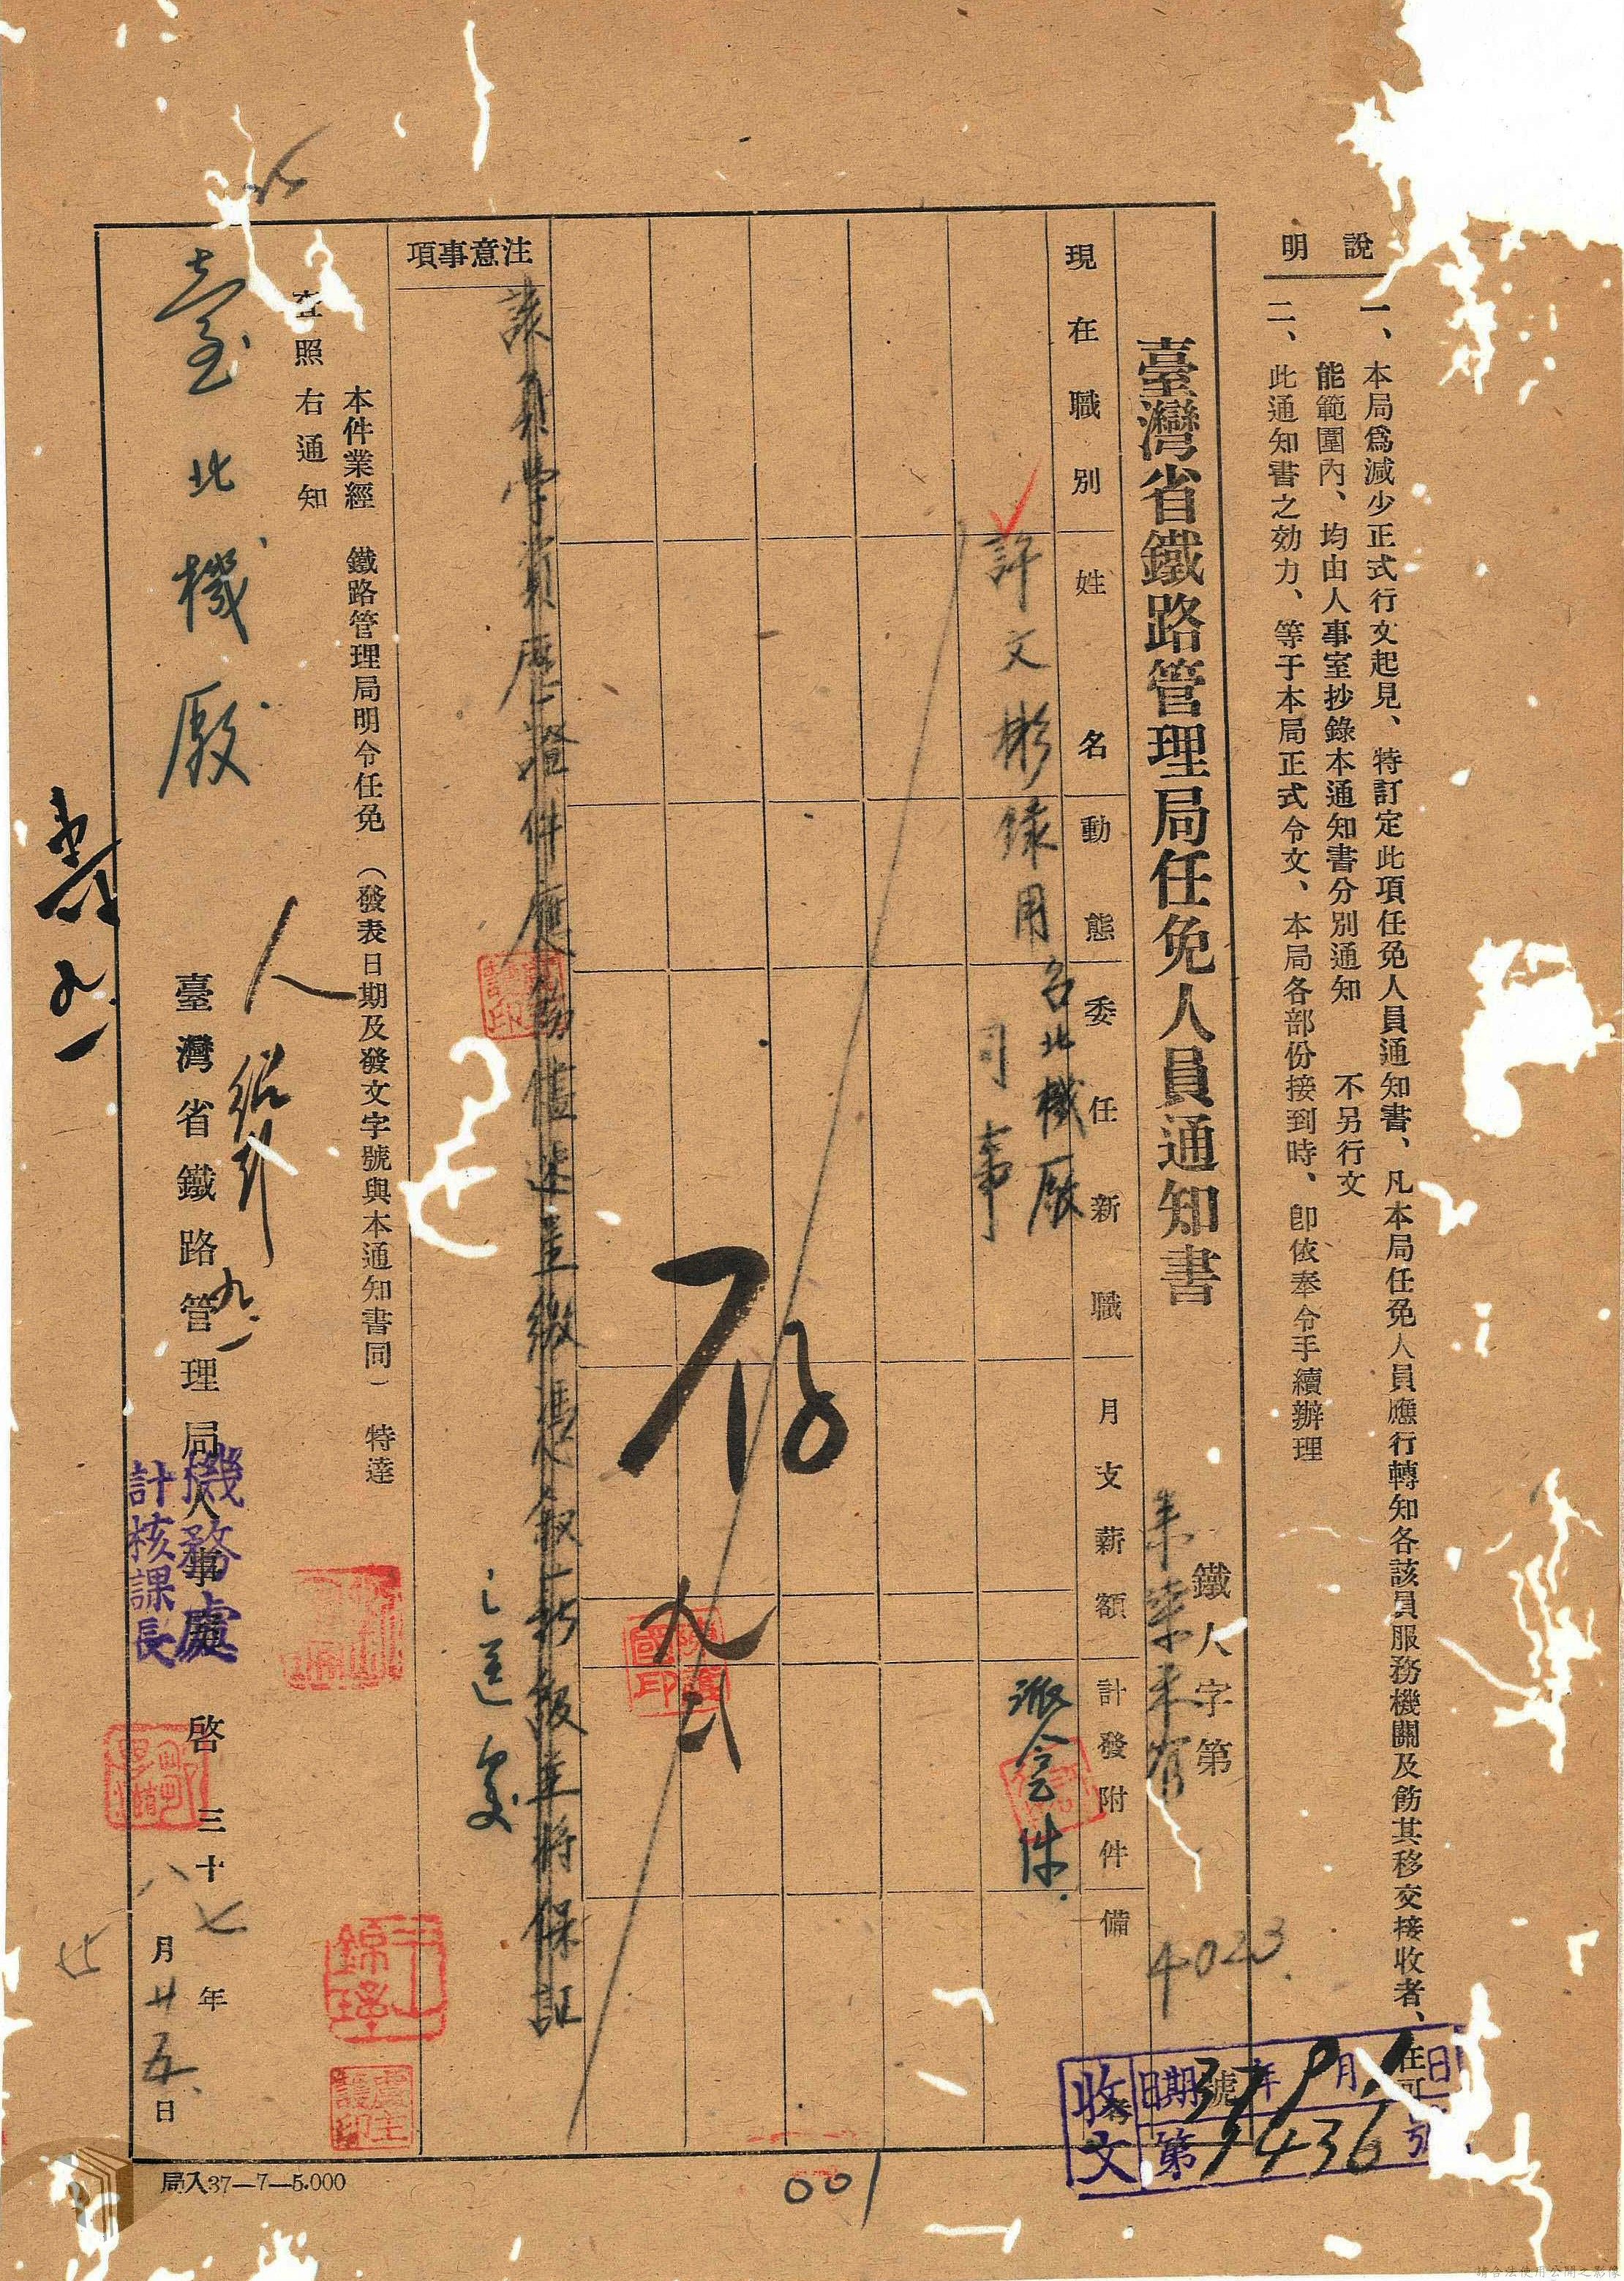 說明
一、本局為減少正式行文起見、特訂定此項任免人員通知書、凡本局任免人員應行轉知各該員服務機關及飭其移交接收者、在可
能範圍內、均由人事室抄錄本通知書分別通知 不另行文
二、此通知書之効力、等于本局正式令文、本局各部份接到時、卽依奉令手續辦理
臺灣省鐵路管理局任免人員通知書
鐵人字第 號
4023
收文
日期 37年9月1日
第9436號
現在職別
姓名
動態
委任新職
月支薪額
計發附件
備考
許文彬
錄用
台北機厰
司事
派令 件
存
九
注意事項
該員學資歷證件應 繳憑叙 將保証
送處
本件業經 鐵路管理局明令任免 (發表日期及發文字號與本通知書同) 特達
查照
右通知
臺北機厰
臺灣省鐵路管理局人事處 啓 三十七年八月廿五日
機務處
計核課長
局入37—7—5.000
001
請合法使用公開之影像